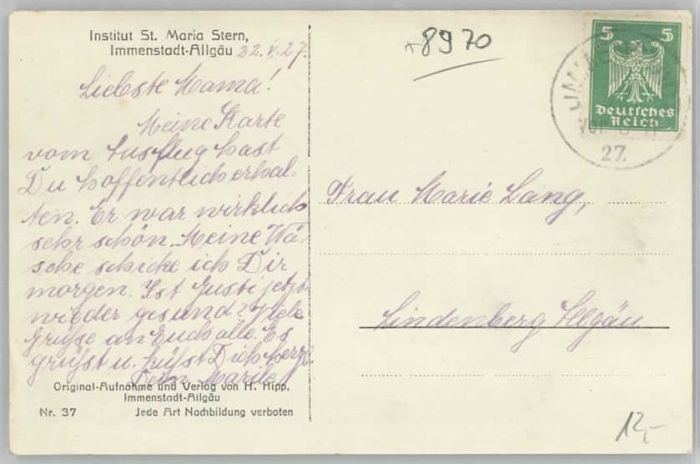 Institut St. Maria Stern,
Immenstadt-Allgäu 22.V.27.
Liebste Mama!
Meine Karte
vom Ausflug hast
Du hoffentlich erhal-
ten. Er war wirklich
sehr schön. Meine Wä-
sche schicke ich Dir
morgen. Ist Gusti jetzt
wieder gesund? Viele
Grüße an Euch alle. Es
grüßt u. küßt Dich herzl.
Dein Marile
Original-Aufnahme und Verlag von H. Hipp,
Immenstadt-Allgäu
Nr. 37 Jede Art Nachbildung verboten
8970
5 5
Deutsches
Reich
27.
Frau Marie Lang,
Lindenberg Allgäu
12,-